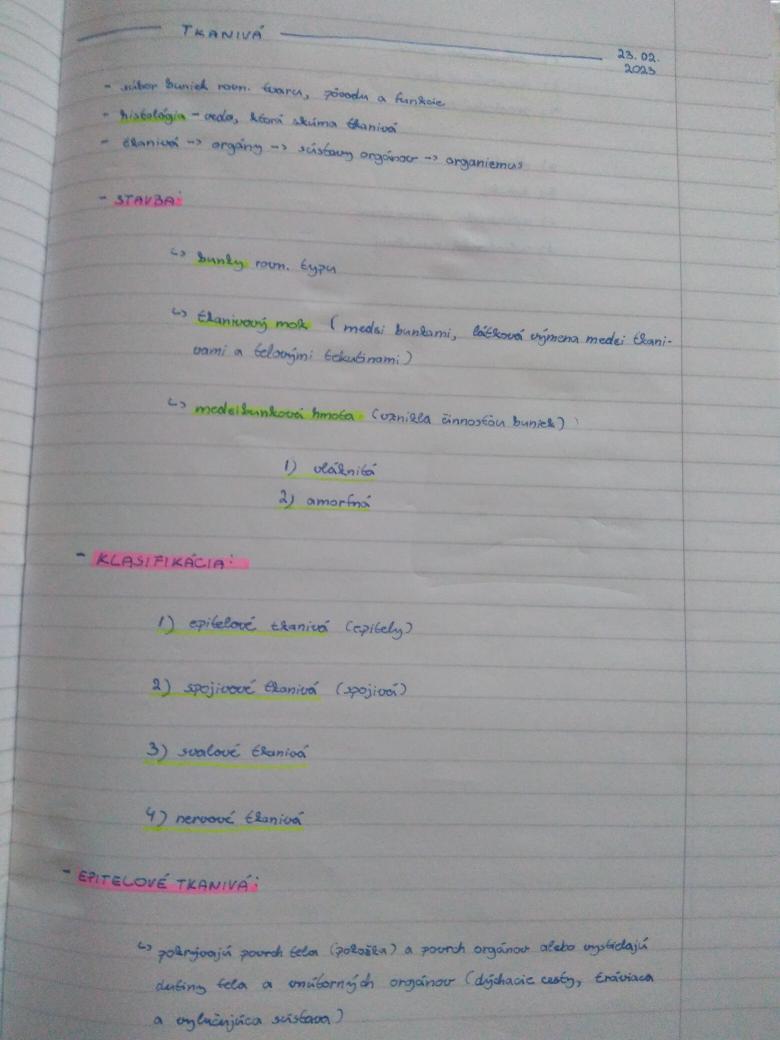 TKANIVÁ
23.02.
2023
- súbor buniek rovn. tvaru, pôvodu a funkcie
- histológia - veda, ktorá skúma tkanivá
- tkanivá -> orgány -> sústavy orgánov -> organizmus
- STAVBA:
↳ bunky rovn. typu
↳ tkanivový mok (medzi bunkami, látková výmena medzi tkani-
vami a telovými tekutinami)
↳ medzibunková hmota (vznikla činnosťou buniek)
1) vláknitá
2) amorfná
- KLASIFIKÁCIA:
1) epitelové tkanivá (epitely)
2) spojivové tkanivá (spojivá)
3) svalové tkanivá
4) nervové tkanivá
- EPITELOVÉ TKANIVÁ:
↳ pokrývajú povrch tela (pokožka) a povrch orgánov alebo vystielajú
dutiny tela a vnútorných orgánov (dýchacie cesty, tráviaca
a vylučujúca sústava)